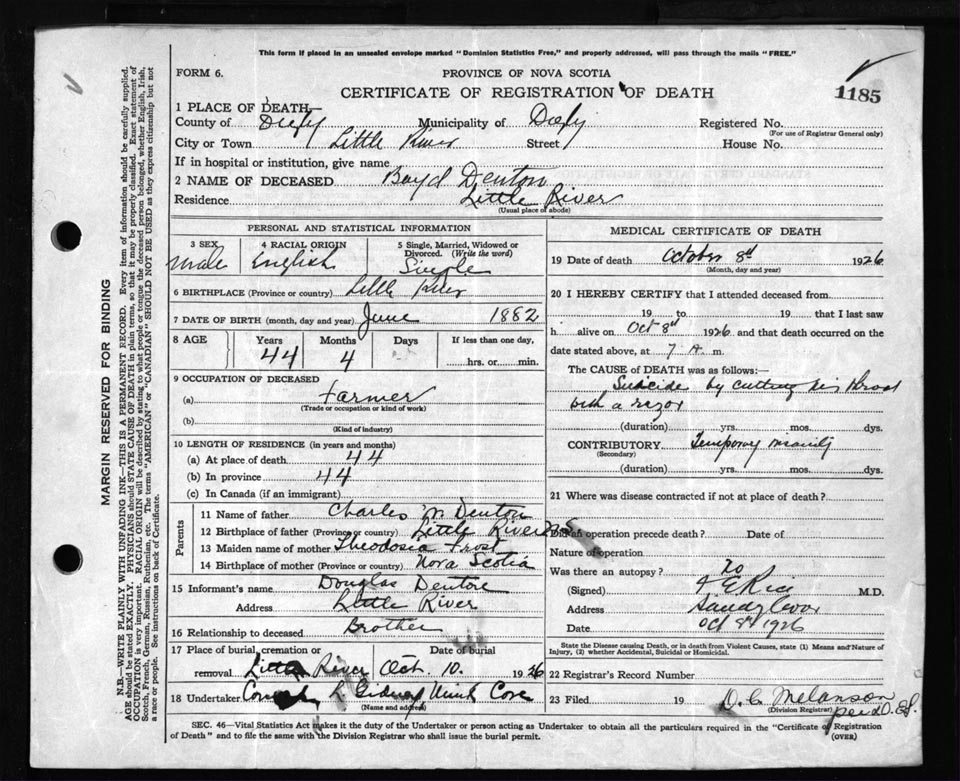 This form if placed in an unsealed envelope marked "Dominion Statistics Free," and properly addressed, will pass through the mails "FREE."
FORM 6.
PROVINCE OF NOVA SCOTIA
CERTIFICATE OF REGISTRATION OF DEATH
1185
1 PLACE OF DEATH—
County of Digby Municipality of Digby Registered No.
(For use of Registrar General only)
City or Town Little River Street House No.
If in hospital or institution, give name
2 NAME OF DECEASED Boyd Denton
Residence Little River
(Usual place of abode)
PERSONAL AND STATISTICAL INFORMATION
3 SEX 4 RACIAL ORIGIN 5 Single, Married, Widowed or Divorced. (Write the word)
Male English Single
6 BIRTHPLACE (Province or country) Little River
7 DATE OF BIRTH (month, day and year) June 1882
8 AGE Years Months Days If less than one day,
44 4 hrs. or min.
9 OCCUPATION OF DECEASED
(a) Farmer
(Trade or occupation or kind of work)
(b)
(Kind of industry)
10 LENGTH OF RESIDENCE (in years and months)
(a) At place of death 44
(b) In province 44
(c) In Canada (if an immigrant)
Parents
11 Name of father Charles M Denton
12 Birthplace of father (Province or country) Little River N.S.
13 Maiden name of mother Theodosia Frost
14 Birthplace of mother (Province or country) Nova Scotia
15 Informant's name Douglas Denton
Address Little River
16 Relationship to deceased Brother
17 Place of burial, cremation or removal Date of burial
Little River Oct. 10. 1926
18 Undertaker L Gidney Mink Cove
(Name and address)
MEDICAL CERTIFICATE OF DEATH
19 Date of death October 8d 1926
(Month, day and year)
20 I HEREBY CERTIFY that I attended deceased from
19 to 19 that I last saw
h alive on Oct 8d 1926 and that death occurred on
date stated above, at 7 A. m.
The CAUSE OF DEATH was as follows:
Suicide by cutting his throat
with a razor
(duration) yrs. mos. dys.
CONTRIBUTORY Temporary insanity
(Secondary)
(duration) yrs. mos. dys.
21 Where was disease contracted if not at place of death?
Did an operation precede death? Date of
Nature of operation
Was there an autopsy? No
(Signed) F E Rice M.D.
Address Sandy Cove
Date Oct 8d 1926
State the Disease causing Death, or in death from Violent Causes, state (1) Means and Nature of Injury, (2) whether Accidental, Suicidal or Homicidal.
22 Registrar's Record Number
23 Filed 19 D. C. Melanson
(Division Registrar)
per D.
SEC. 46—Vital Statistics Act makes it the duty of the Undertaker or person acting as Undertaker to obtain all the particulars required in the "Certificate of Registration of Death" and to file the same with the Division Registrar who shall issue the burial permit.
(OVER)
MARGIN RESERVED FOR BINDING
N.B.—WRITE PLAINLY WITH UNFADING INK—THIS IS A PERMANENT RECORD. Every item of information should be carefully supplied.
AGE should be stated EXACTLY. PHYSICIANS should STATE CAUSE OF DEATH in plain terms, so that it may be properly classified. Exact statement of
OCCUPATION is very important. RACIAL ORIGIN will be described by stating to what people or tongue the deceased person belonged, whether English, Irish,
Scotch, French, German, Russian, Ruthenian, etc. The terms "AMERICAN" or "CANADIAN" SHOULD NOT BE USED as they express citizenship but not
a race or people. See instructions on back of Certificate.